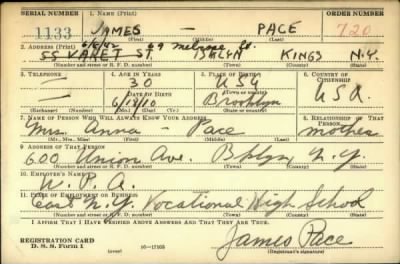 SERIAL NUMBER 1. NAME (Print) ORDER NUMBER
1133 JAMES — PACE 720
(First) (Middle) (Last)
6/5/42 69 Melrose St.
2. ADDRESS (Print)
55 VARET ST. BKLYN KINGS N.Y.
(Number and street or R. F. D. number) (Town) (County) (State)
3. TELEPHONE 4. AGE IN YEARS 5. PLACE OF BIRTH 6. COUNTRY OF CITIZENSHIP
— 30 Brooklyn
DATE OF BIRTH (Town or county)
— 6/18/10 U.S.A. U.S.A.
(Exchange) (Number) (Mo.) (Day) (Yr.) (State or country)
7. NAME OF PERSON WHO WILL ALWAYS KNOW YOUR ADDRESS 8. RELATIONSHIP OF THAT PERSON
Mrs. Anna — Pace mother
(Mr., Mrs., Miss) (First) (Middle) (Last)
9. ADDRESS OF THAT PERSON
600 Union Ave. Bklyn, N.Y.
(Number and street or R. F. D. number) (Town) (County) (State)
10. EMPLOYER'S NAME
W. P. A.
11. PLACE OF EMPLOYMENT OR BUSINESS
East N.Y. Vocational High School
(Number and street or R. F. D. number) (Town) (County) (State)
I AFFIRM THAT I HAVE VERIFIED ABOVE ANSWERS AND THAT THEY ARE TRUE.
REGISTRATION CARD
D. S. S. Form 1 (over) 16—17105
James Pace
(Registrant's signature)